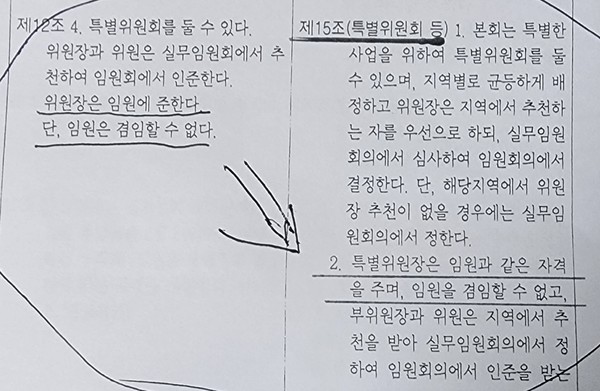 제12조 4. 특별위원회를 둘 수 있다.
위원장과 위원은 실무임원회에서 추
천하여 임원회에서 인준한다.
위원장은 임원에 준한다.
단, 임원은 겸임할 수 없다.
제15조(특별위원회 등) 1. 본회는 특별한
사업을 위하여 특별위원회를 둘
수 있으며, 지역별로 균등하게 배
정하고 위원장은 지역에서 추천하
는 자를 우선으로 하되, 실무임원
회의에서 심사하여 임원회의에서
결정한다. 단, 해당지역에서 위원
장 추천이 없을 경우에는 실무임
원회의에서 정한다.
2. 특별위원장은 임원과 같은 자격
을 주며, 임원을 겸임할 수 없고,
부위원장과 위원은 지역에서 추
천을 받아 실무임원회의에서 정
하여 임원회의에서 인준을 받는